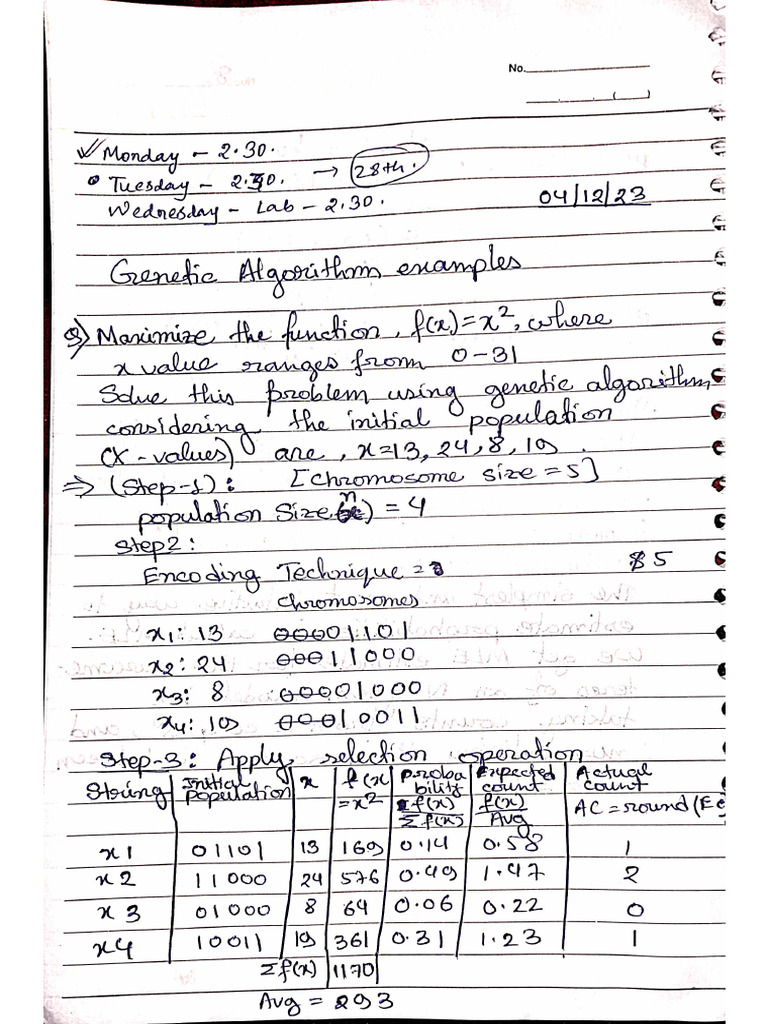 No.
( )
✓ Monday - 2.30.
• Tuesday - 2.30. → 28th.
Wednesday - Lab - 2.30.
04/12/23
Genetic Algorithm examples
Q) Maximize the function, f(x)=x², where
x value ranges from 0-31
Solve this problem using genetic algorithm
considering the initial population
(X-values) are, x=13, 24, 8, 19.
⇒ (Step-1): [chromosome size = 5]
population Size(n) = 4
Step2:
Encoding Technique = 5
chromosomes
x1: 13 00001101
x2: 24 00011000
x3: 8 00001000
x4: 19 00010011
Step-3: Apply selection operation
String | Initial population | x | f(x) =x² | Probability f(x)/Σf(x) | Expected count f(x)/Avg | Actual count AC = round(Ec
x1 | 01101 | 13 | 169 | 0.14 | 0.58 | 1
x2 | 11000 | 24 | 576 | 0.49 | 1.47 | 2
x3 | 01000 | 8 | 64 | 0.06 | 0.22 | 0
x4 | 10011 | 19 | 361 | 0.31 | 1.23 | 1
Σf(x) | 1170
Avg = 293